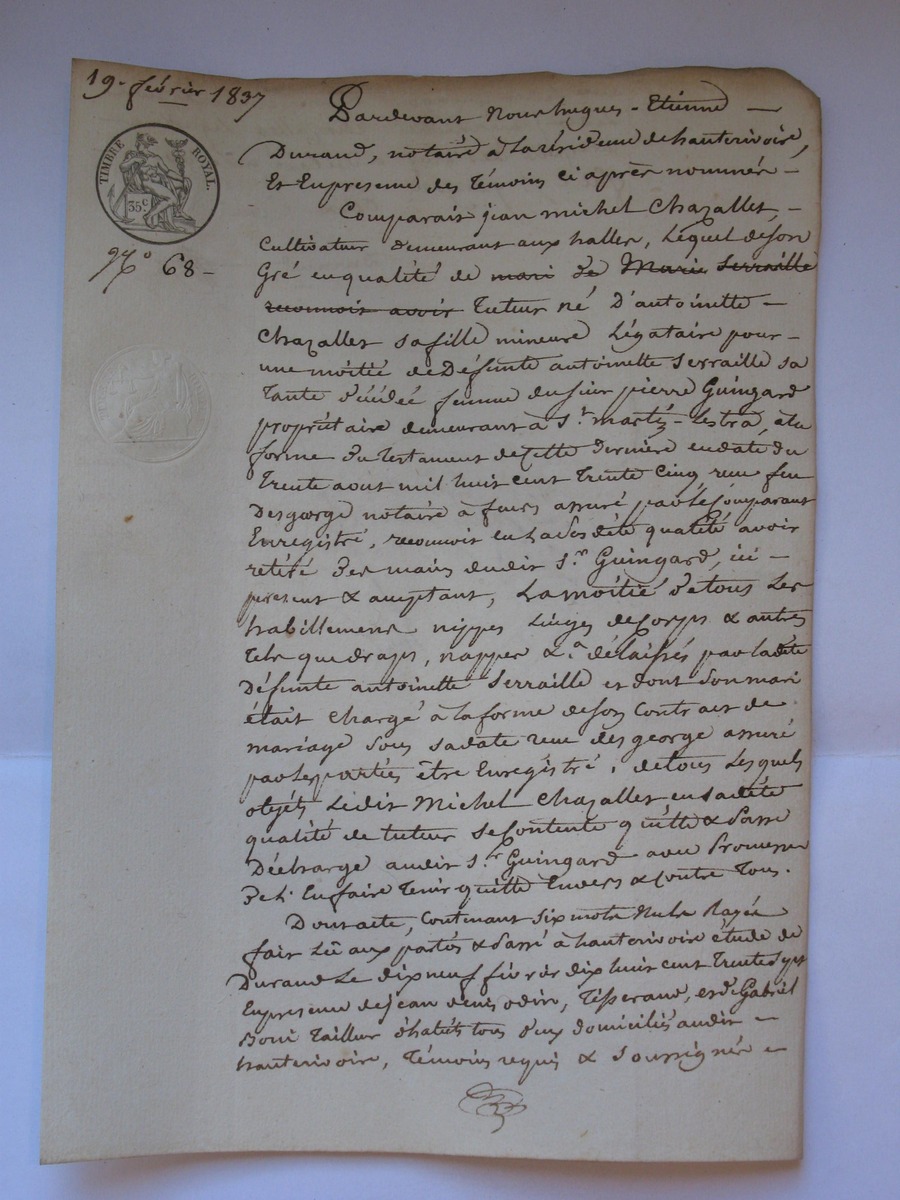 19. février 1837
TIMBRE ROYAL.
35 c.
N.° 68 –
Pardevant Nous hugues - Etienne –
Durand, notaire à la résidence de hauterivoire,
Et En presence des Témoins Ci après nommés –
Comparait jean michel Chazallet, –
Cultivateur demeurant aux halles, Léquel de son
Gré en qualité de mari de Marie Serraille
reconnois avoir Tuteur né D'antoinette –
Chazallet sa fille mineure Légataire pour –
une moitié de Défunte antoinette Serraille sa
Tante décédée femme du sieur pierre Guingard
propriétaire demeurant à S.t martin - Lestra, à la
forme du Testament de Cette Dernière en date du
Trente aout mil huit cent Trente Cinq reçu feu
Desgeorge notaire à feurs assuré par Le Comparant
Enregistré, reconnoit en sa des dété qualité avoir
rétiré des mains dudit S.r Guingard, ici –
present & acceptant, La moitié de tous Les
habillement nippes Linges de Corps & autres
Tels que draps, nappes &.a délaissés par ladéte
Défunte antoinette Serraille et dont Son mari
était Chargé à la forme de son Contract de
mariage Sous sa date reçu des george assuré
par Les parties être Enregistré, de tous Les quels
objéts Ledit Michel Chazallet en sa déte
qualité de tuteur se Contente quitte & Passe
Décharge audit S.r Guingard avec Promesse
de L'En faire Tenir quitte Envers & Contre Tous.
Dont acte, Contenant Six mots Nuls Rayés
fait Lû aux partés & Passé à hauterivoire étude de
Durand Le dix neuf février dix huit cent Trente Sept
En presence de jean denis odin, Tisserand, et de Gabriel
Boni Tailleur d'habits tous deux domiciliés audit –
hauterivoire, Témoins requis & Soussignés –